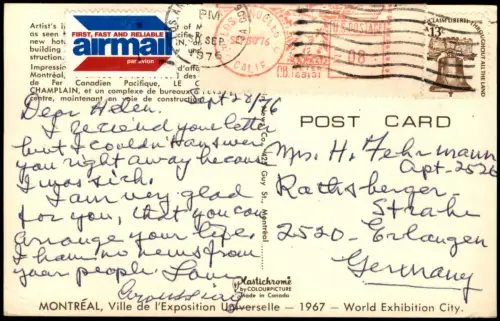 Artist's
as seen
new hote
building
area.
Impressio
Montréal,
de Fer Canadien Pacifique, LE
CHAMPLAIN, et un complexe de bureaux
centre, maintenant en voie de construction
FIRST, FAST AND RELIABLE
airmail
par avion
PM
SEP
1976
LOS ANGELES
SEP 30 '76
CALIF.
U.S. POSTAGE
08
P.B.
PROCLAIM LIBERTY THROUGHOUT ALL THE LAND
13c
Sept 28/76
Dear Helen.
I received your letter
but I couldn't answer
you right away because
I was sick.
I am very glad
for you, that you can
arrange your life.
I have no news from
your people. Love
POST CARD
Mrs. H. Fehrmann
Apt. 2526
Rathsberger-
Straße
2520- Erlangen
Germany
1827 Guy St., Montreal
Plastichrome
by COLOURPICTURE
Made in Canada
MONTRÉAL, Ville de l'Exposition Universelle — 1967 — World Exhibition City.